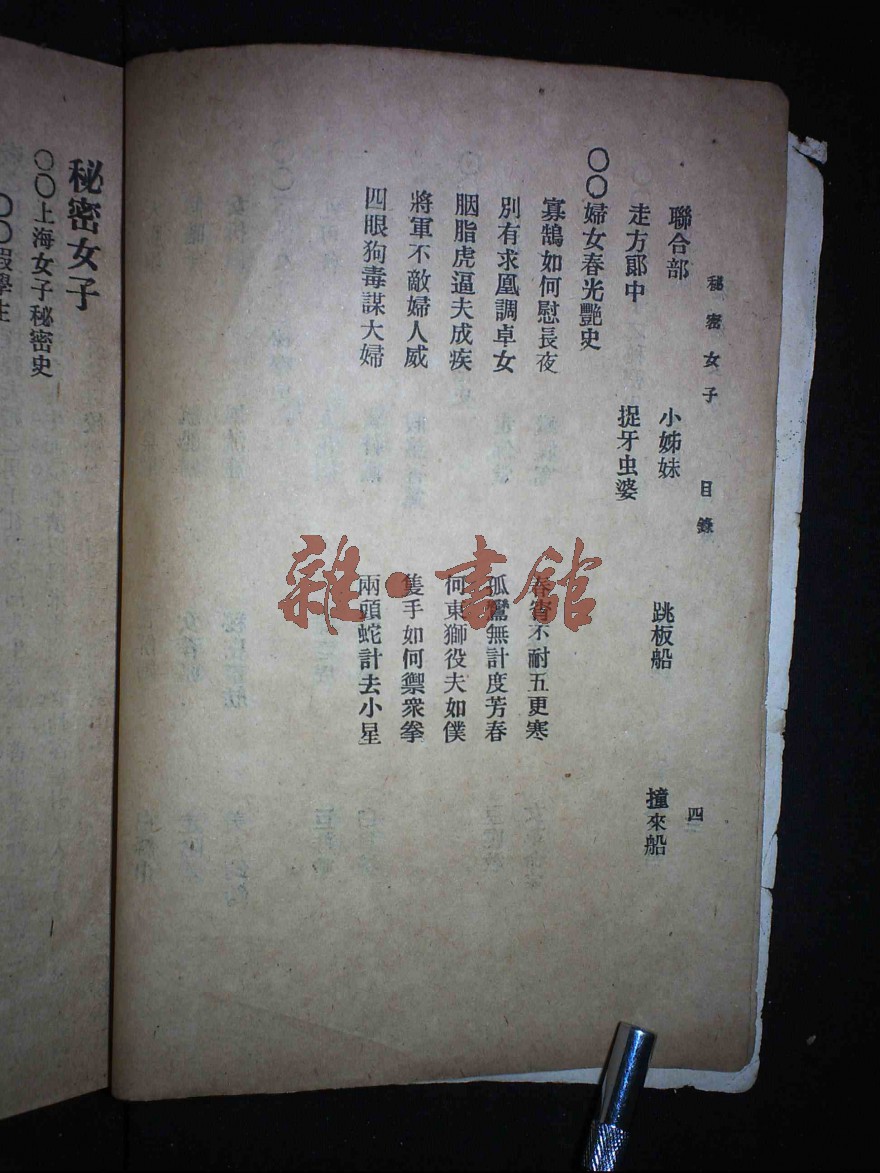 秘密女子 目錄 四
聯合部 小姊妹 跳板船 撞來船
走方郎中 捉牙虫婆
〇〇婦女春光艷史
寡鵠如何慰長夜 春宵不耐五更寒
別有求凰調卓女 孤鸞無計度芳春
胭脂虎逼夫成疾 何東獅役夫如僕
將軍不敵婦人威 隻手如何禦衆拳
四眼狗毒謀大婦 兩頭蛇計去小星
秘密女子
〇〇上海女子秘密史
〇〇假學生
雜·書館